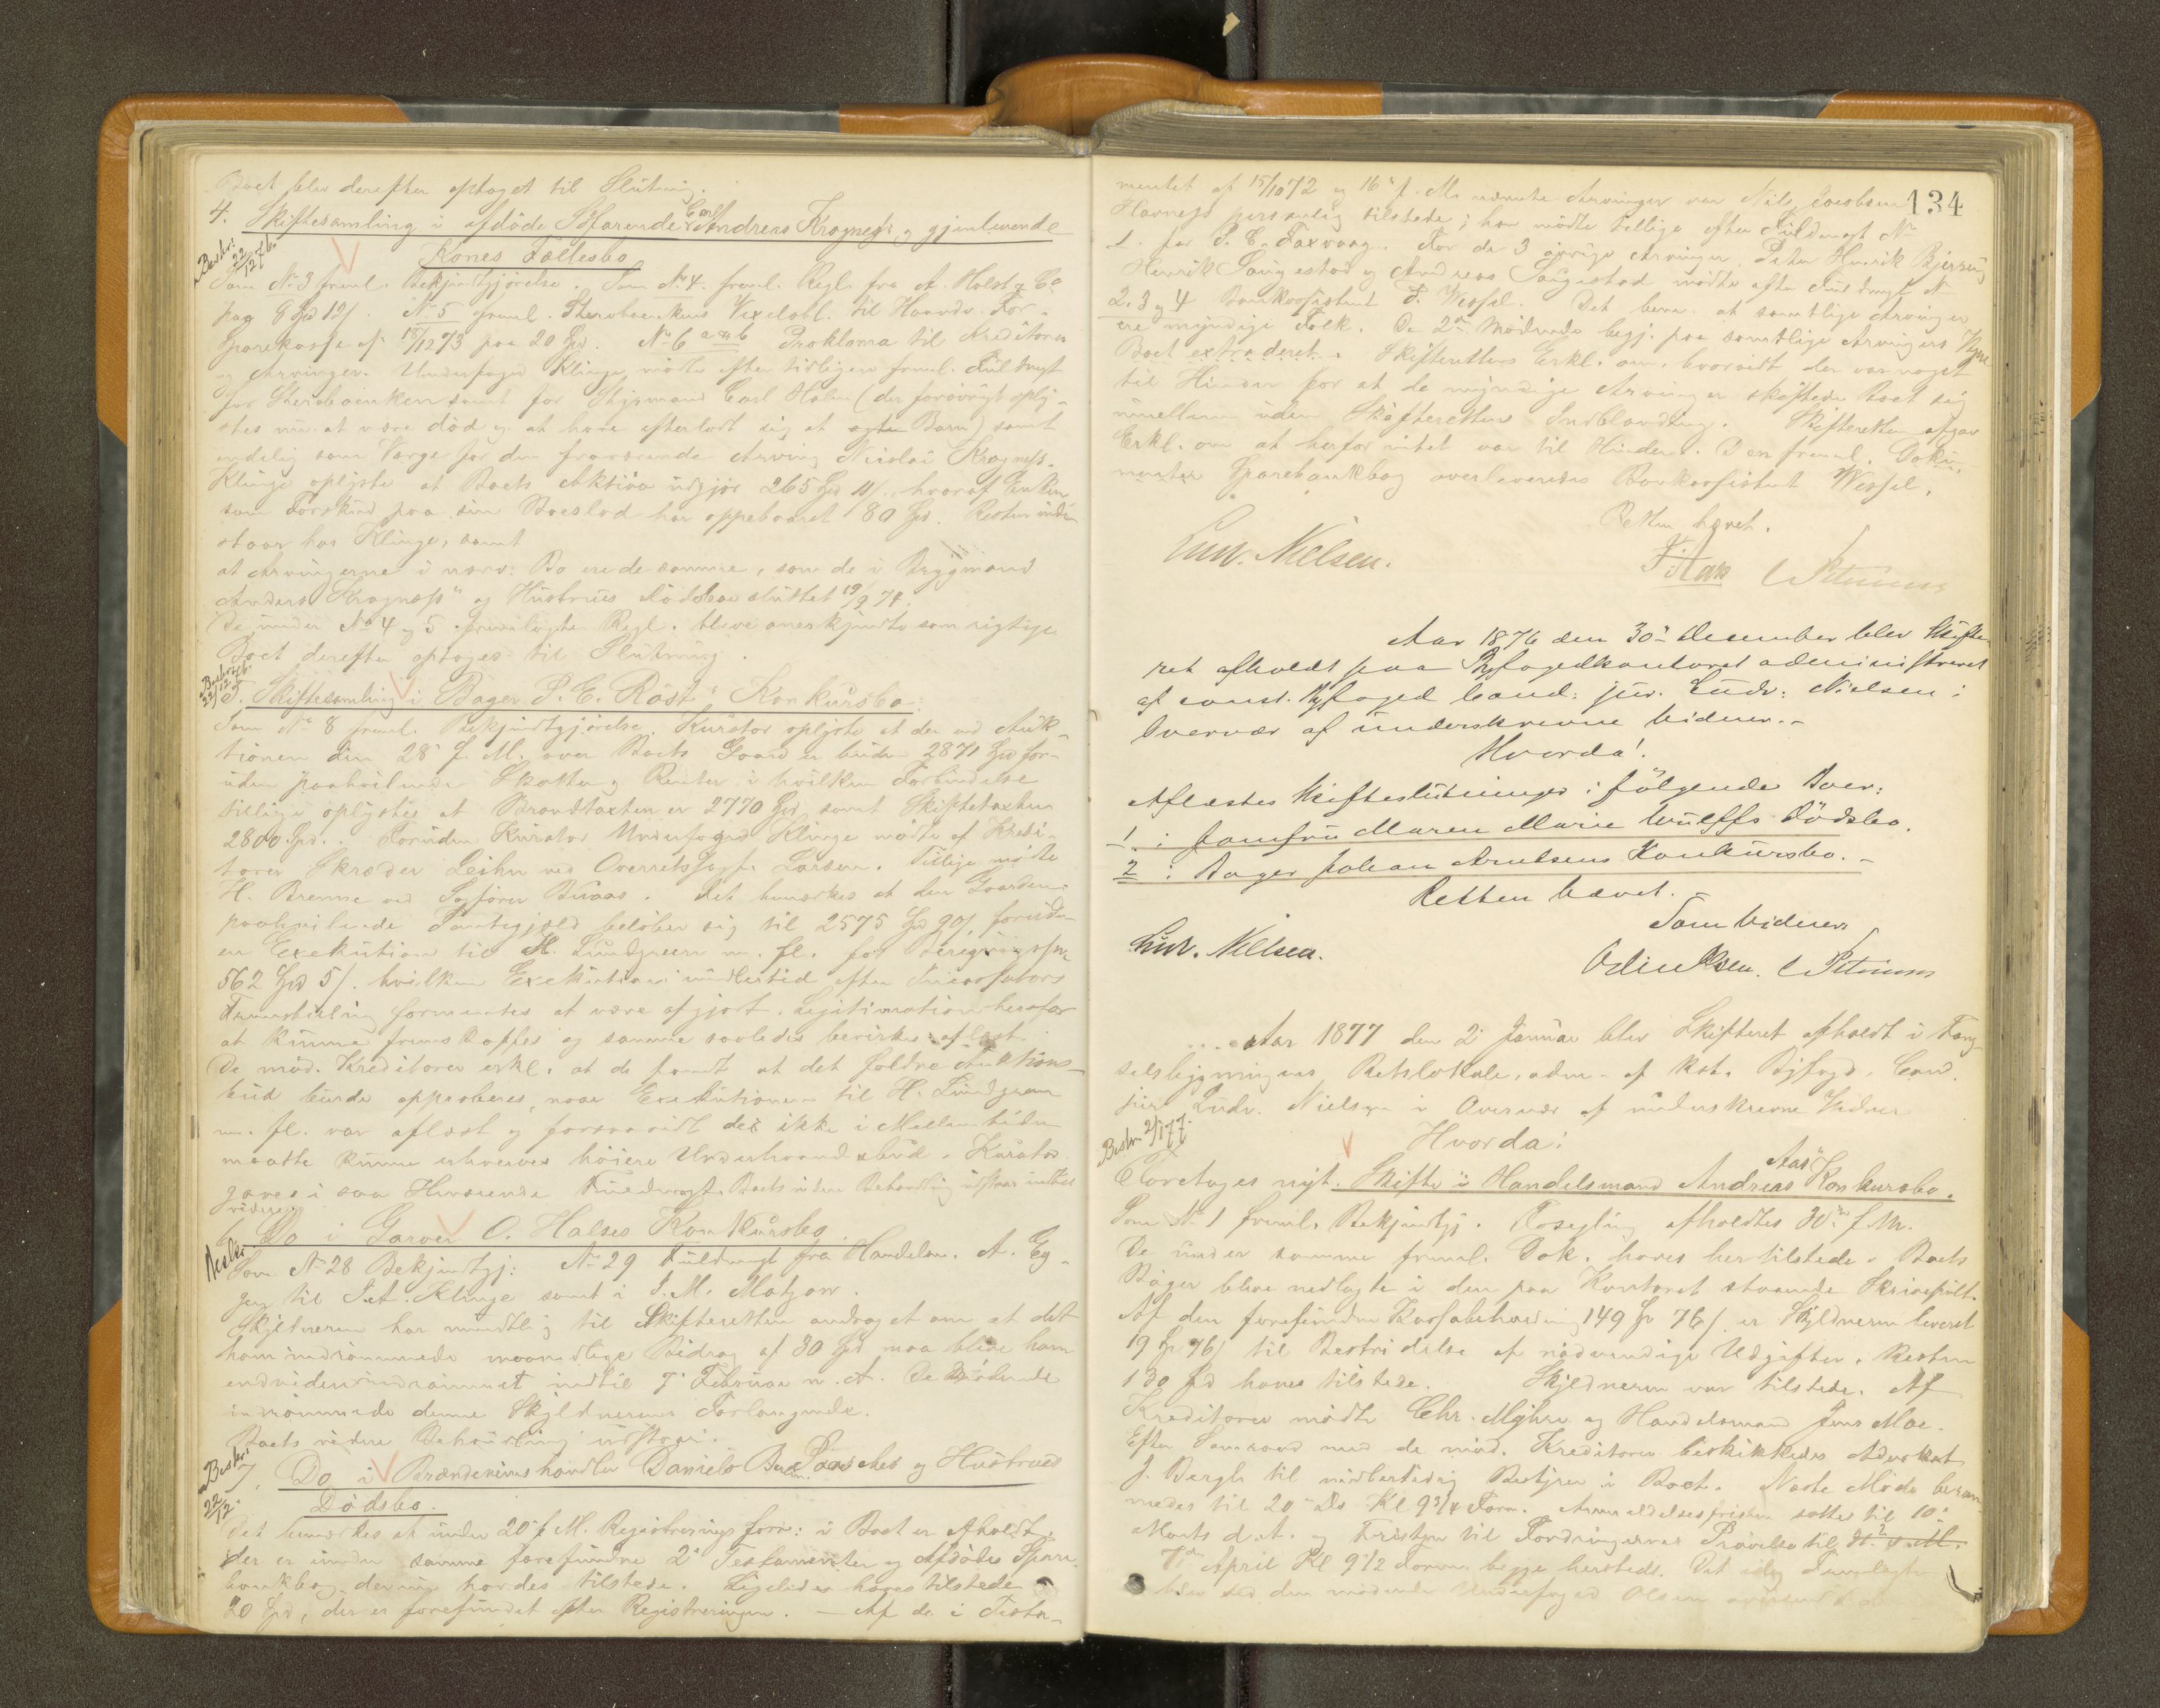 Boet blev derefter optaget til Slutning.
4. Skiftesamling i afdöde Söfarende Carl Andreas Kragness's og gjenlevende
Beskr: 22/12 76.
Kones Fællesbo
Som No 3 freml. Bekjendtgjörelse. Som No 4. freml. Regl. fra A. Holst & Co
paa 9 Spd 12/. No 5 freml. Vexelobl. til Haandv. For-
Sparekasse af 15/12 73 paa 20 Spd. No 6 a og b Proklama til Kreditorer
og Arvinger. Underfoged Klinge mödte efter tidligere freml. Fuldmagt
for samt for Styrmand Carl Holm (der forövrigt oply-
stes nu at være död og at have efterladt sig et ægte Barn) samt
endelig som Værge for den fraværende Arving Nicolai Kragness.
Klinge oplyste at Boets Aktiva udgjör 265 Spd 11/. hvoraf Enken
som Forskud paa sin Boeslod har oppebaaret 80 Spd. Resten inde-
staar hos Klinge, samt
at Arvingerne i nærv. Bo ere de samme, som de i Brygmand
Anders Kragness" og Hustrues Dödsbo sluttet 19/9 74.
De under No 4 og 5 fremlagte Regl. bleve anerkjendte som rigtige
Boet derefter optoges til Slutning.
5. Skiftesamling i Bager P. E. Röst's Konkursbo.
Som No 8 freml. Bekjendtgjörelse. Kurator oplyste at der ved Auk-
tionen den 28' f. M. over Boets Gaard er buden 2871 Spd for-
uden paahvilende Skatter og Renter i hvilken Forbindelse
tillige oplystes at Brandtaxten er 2770 Spd, samt Skiftetaxten
2800 Spd. Foruden Kurator Underfoged Klinge mödte af Kredi-
torer Skræder Leihn ved Overretssagf. Larsen. Tillige mödte
H. Brenne ved Sagförer Buaas. Det bemærkes at den Gaarden
paahvilende Pantegjæld belöber sig til 2575 Spd 90/, foruden
en Exekution til H. Lundgreen m. fl. for
562 Spd 5/. hvilken Exekution imidlertid efter
Fremstilling formentes at være afgjort. Legitimation herfor
at kunne fremskaffes og samme saaledes bevirkes aflæst.
De möd. Kreditorer erkl. at de fandt at det faldne Auktions-
bud burde approberes, naar Exekutionen til H. Lundgreen
m. fl. var aflæst og forsaavidt der ikke i Mellemtiden
maatte kunne erhverves höiere Underhaandsbud. Kurator
gaves i saa Henseende Fuldmagt. Boets videre Behandling udstaar indtil
videre.
6. Do i Garver O. Halses Konkursbo
Som No 28 Bekjendtgj: No 29 Fuldmagt fra Handelsm. A. Eg-
gen til J. A. Klinge samt i J. M. Matzow.
Skyldneren har mundtlig til Skifteretten andraget om at det
ham indrömmede maanedlige Bidrag af 30 Spd maa blive ham
endvidere indrömmet indtil 7' Februar n. A. De mödende
indrömmede denne Skyldnerens Forlangende.
Boets videre Behandling udstaar.
Beskr: 22/12.
7. Do i Brændevinshandler Daniels Paasches og Hustrues
Dödsbo.
Det bemærkes at under 20' f. M. Registreringsforr: i Boet er afholdt.
Der er under samme forefundne 2' Testamenter og Afdödes Spare-
bankbog haves tilstede. Ligeledes haves tilstede
20 Spd, der er forefundet efter Registreringen. — Af de i Testa-
134
mentet af 15/10 72 og 16' f. M. nævnte Arvinger var Nils Jacobsen
Havness personlig tilstede; han mödte tillige efter Fuldmagt No
1. for P. C. Faxvaag. For de 3 övrige Arvinger, Peter Henrik
Henrik Saugestad og Andreas Saugestad mödte efter Fuldmagt No
2. 3 og 4 Bankassistent F. Wessel. Det bem. at samtlige Arvinger
ere myndige Folk. De 2de Mödende begj. paa samtlige Arvingers Vegne
Boet extraderet. Skifterettens Erkl. om, hvorvidt der var noget
til Hinder for at de myndige Arvinger skiftede Boet sig
imellem uden Skifterettens Indblanding. Skifteretten afgav
Erkl. om at herfor intet var til Hinder. Den freml. Doku-
menter Sparebankbog overleveredes Bankassistent Wessel.
Retten hævet.
Ludv. Nielsen.
Aar 1876 den 30' December blev Skifte-
ret afholdt paa Byfogedkontoret administreret
af const. Byfoged Cand: jur. Ludv: Nielsen i
Overvær af underskrevne Vidner. -
Hvorda!
Aflæstes Skifteslutninger i fölgende Boer:
1. i Jomfru Maren Marie Wulffs Dödsbo.
2 i Bager Johan Arntsens Konkursbo. -
Retten hævet. -
Som Vidner
Ludv. Nielsen.
Aar 1877 den 2' Januar blev Skifteret afholdt i Fæng-
selsbygningens Retslokale, adm. af kst. Byfogd, Cand.
jur. Ludv. Nielsen i Overvær af underskrevne Vidner
Beskr. 2/1 77.
Hvorda:
Foretoges nyt. Skifte i Handelsmand Andreas Aas' Konkursbo.
Som No 1 freml. Bekjendtgj. Forsegling afholdtes 30' f. M.
De under samme freml. Dok. haves her tilstede. Boets
Böger bleve nedlagte i den paa Kontoret staaende Skrivepult.
Af den forefundne Kassabeholdning 149 Sp 76/. er Skyldneren leveret
19 Sp 76/ til Bestridelse af nödvendige Udgifter. Resten
130 Spd haves tilstede. Skyldneren var tilstede. Af
Kreditorer mödte Chr. Myhre og Handelsmand Jens Moe.
Efter Samraad med de möd. Kreditorer beskikkedes Advokat
J. Bergh til midlertidig Bestyrer i Boet. Næste Möde beram-
medes til 20' ds Kl 9 3/4 Form. Anmeldelsesfristen sattes til 10'
Marts d. A. og Fristen til Fordringernes Prövelse til
7de April Kl 9 1/2 Form. begge hersteds. Det idag Fremlagte
blev ved den mödende Underfoged Olsen